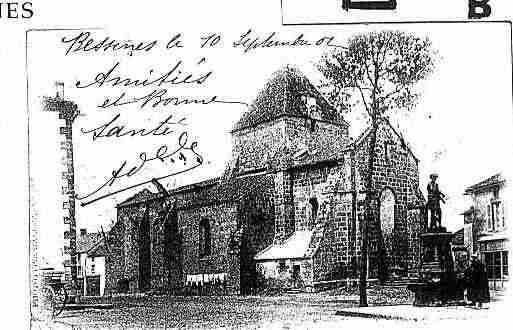 NES
B
Bessines le 10 Septembre 01
Amitiés
et Bonne
Santé